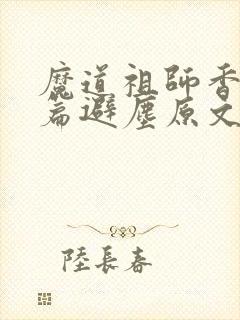 魔道祖師香
篇避塵原文
陸長春